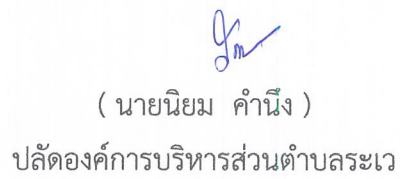 ( นายนิยม คำนึง )
ปลัดองค์การบริหารส่วนตำบลระเว